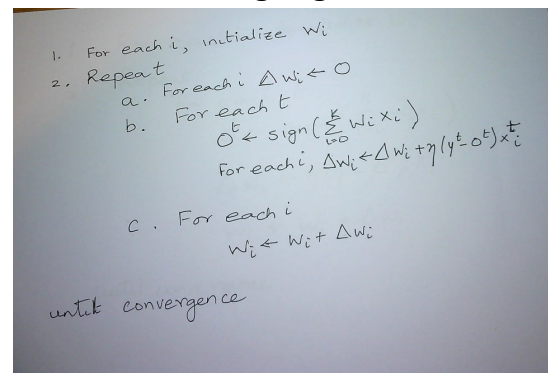 1. For each i, initialize Wi
2. Repeat
a. For each i ΔWi ← 0
b. For each t
O^t ← sign(∑_{i=0}^{k} Wi xi)
For each i, ΔWi ← ΔWi + η(y^t - O^t) x_i^t
C. For each i
Wi ← Wi + ΔWi
until convergence